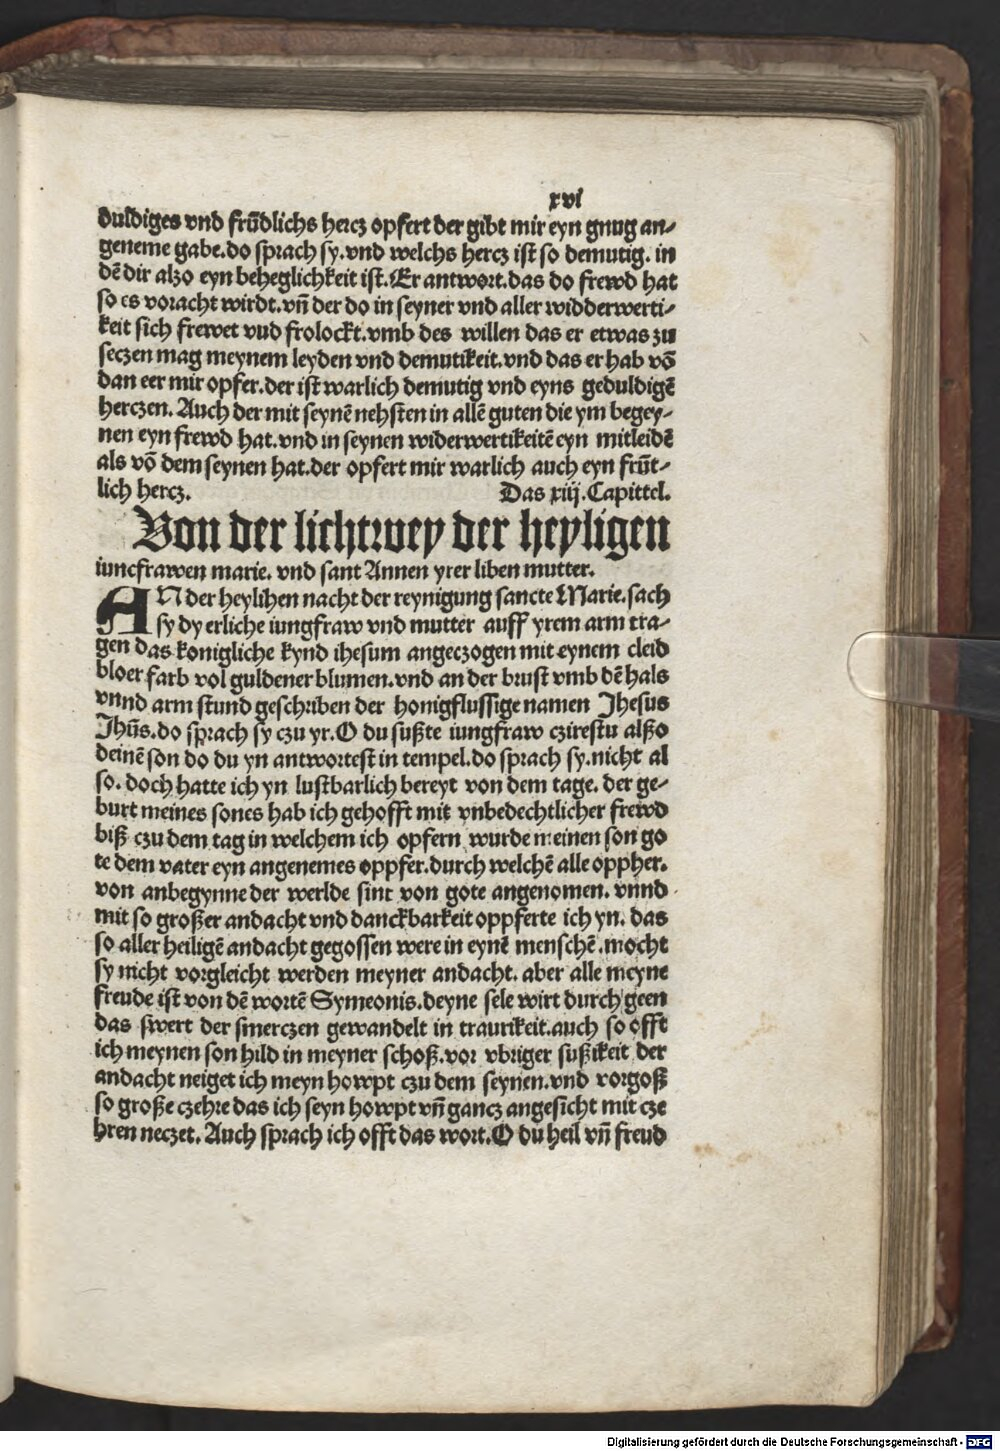 xvi
duldiges vnd frũdlichs hercz opfert der gibt mir eyn gnug an-
geneme gabe.do sprach sy.vnd welchs hercz ist so demutig. in
dẽ dir alzo eyn beheglichkeit ist.Er antwort.das do frewd hat
so es voracht wirdt.vñ der do in seyner vnd aller widderwerti-
keit sich frewet vud frolockt.vmb des willen das er etwas zu
seczen mag meynem leyden vnd demutikeit.vnd das er hab võ
dan eer mir opfer.der ist warlich demutig vnd eyns geduldigẽ
herczen. Auch der mit seynẽ nehsten in allẽ guten die ym begey-
nen eyn frewd hat.vnd in seynen widerwertikeitẽ eyn mitleidẽ
als võ dem seynen hat.der opfert mir warlich auch eyn frũt-
lich hercz. Das xiij.Capittel.
Von der lichtwey der heyligen
iuncfrawen marie. vnd sant Annen yrer liben mutter.
AN der heylihen nacht der reynigung sancte Marie.sach
sy dy erliche iungfraw vnd mutter auff yrem arm tra-
gen das konigliche kynd ihesum angeczogen mit eynem cleid
bloer farb vol guldener blumen.vnd an der brust vmb dẽ hals
vnnd arm stund geschriben der honigflussige namen Jhesus
Jhũs.do sprach sy czu yr.O du sußte iungfraw czirestu alßo
deinẽ son do du yn antwortest in tempel.do sprach sy.nicht al
so. doch hatte ich yn lustbarlich bereyt von dem tage. der ge-
burt meines sones hab ich gehofft mit vnbedechtlicher frewd
biß czu dem tag in welchem ich opfern wurde meinen son go
te dem vater eyn angenemes oppfer.durch welchẽ alle oppher.
von anbegynne der werlde sint von gote angenomen. vnnd
mit so großer andacht vnd danckbarkeit oppferte ich yn. das
so aller heiligẽ andacht gegossen were in eynẽ menschẽ.mocht
sy nicht vorgleicht werden meyner andacht. aber alle meyne
freude ist von dẽ wortẽ Symeonis.deyne sele wirt durch geen
das swert der smerczen gewandelt in traurikeit.auch so offt
ich meynen son hild in meyner schoß.vor vbriger sußikeit der
andacht neiget ich meyn howpt czu dem seynen.vnd vorgoß
so große czehre das ich seyn howpt vñ gancz angesicht mit cze
hren neczet. Auch sprach ich offt das wort.O du heil vñ freud
Digitalisierung gefördert durch die Deutsche Forschungsgemeinschaft - DFG